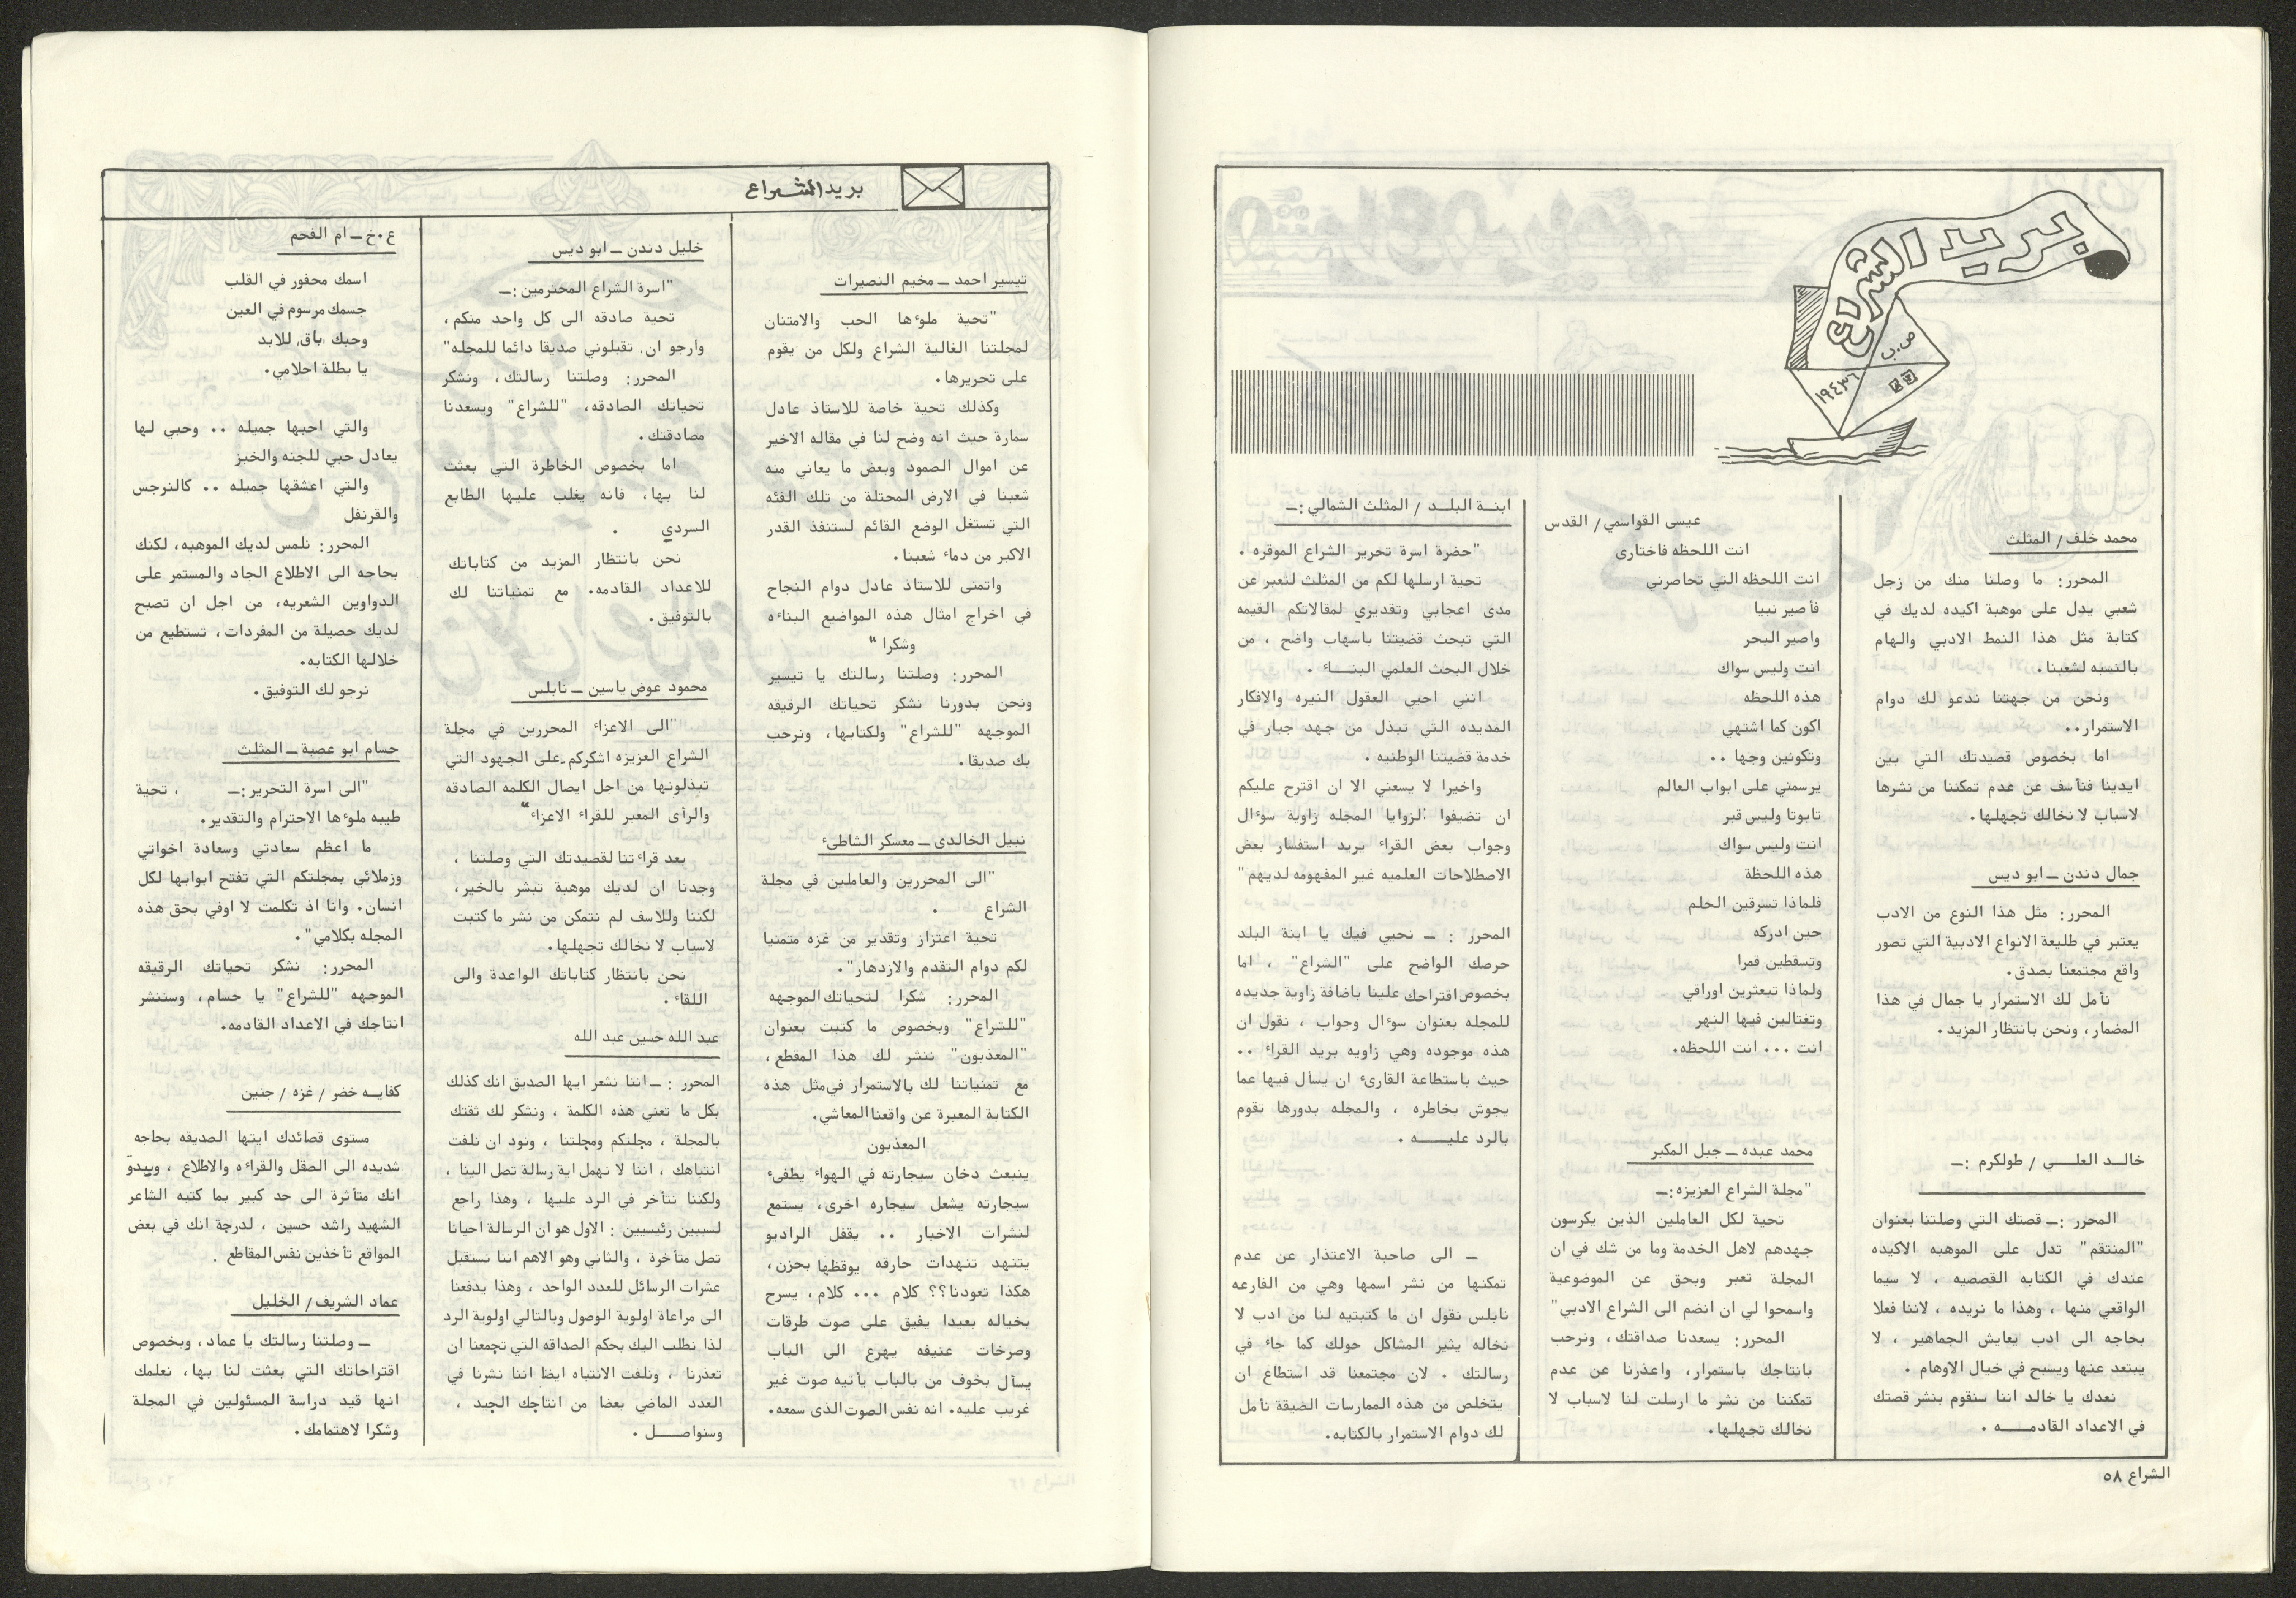 بريد الشراع
ص.ب
١٩٤٣٦
محمد خلف / المثلث
المحرر: ما وصلنا منك من زجل
شعبي يدل على موهبة اكيده لديك في
كتابة مثل هذا النمط الادبي والهام
بالنسبه لشعبنا.
ونحن من جهتنا ندعو لك دوام
الاستمرار..
اما بخصوص قصيدتك التي بين
ايدينا فنأسف عن عدم تمكننا من نشرها
لاسباب لا نخالك تجهلها.
جمال دندن ـ ابو ديس
المحرر: مثل هذا النوع من الادب
يعتبر في طليعة الانواع الادبية التي تصور
واقع مجتمعنا بصدق.
نأمل لك الاستمرار يا جمال في هذا
المضمار، ونحن بانتظار المزيد.
خالـد العلـــي / طولكرم :ـ
المحرر :ـ قصتك التي وصلتنا بعنوان
"المنتقم" تدل على الموهبه الاكيده
عندك في الكتابه القصصيه ، لا سيما
الواقعي منها ، وهذا ما نريده ، لاننا فعلا
بحاجه الى ادب يعايش الجماهير ، لا
يبتعد عنها ويسبح في خيال الاوهام .
نعدك يا خالد اننا سنقوم بنشر قصتك
في الاعداد القادمــــه .
عيسى القواسمي/ القدس
انت اللحظه فاختارى
انت اللحظه التي تحاصرني
فأصير نبيا
واصير البحر
انت وليس سواك
هذه اللحظه
اكون كما اشتهي
وتكونين وجها ..
يرسمني على ابواب العالم
تابوتا وليس قبر
انت وليس سواك
هذه اللحظة
فلماذا تسرقين الحلم
حين ادركه
وتسقطين قمرا
ولماذا تبعثرين اوراقي
وتغتالين فيها النهر
انت ... انت اللحظه.
محمد عبده ـ جبل المكبر
"مجلة الشراع العزيزه:ـ
تحية لكل العاملين الذين يكرسون
جهدهم لاهل الخدمة وما من شك في ان
المجلة تعبر وبحق عن الموضوعية
واسمحوا لي ان انضم الى الشراع الادبي"
المحرر: يسعدنا صداقتك، ونرحب
بانتاجك باستمرار، واعذرنا عن عدم
تمكننا من نشر ما ارسلت لنا لاسباب لا
نخالك تجهلها.
ابنــة البلــد / المثلث الشمالي :ـ
"حضرة اسرة تحرير الشراع الموقره .
تحية ارسلها لكم من المثلث لتعبر عن
مدى اعجابي وتقديري لمقالاتكم القيمه
التي تبحث قضيتنا باسهاب واضح ، من
خلال البحث العلمي البنـــاء .
انني احيي العقول النيره والافكار
المديده التي تبذل من جهد جبار في
خدمة قضيتنا الوطنيه .
واخيرا لا يسعني الا ان اقترح عليكم
ان تضيفوا لزوايا المجله زاوية سوءال
وجواب بعض القراء يريد استفسار بعض
الاصطلاحات العلميه غير المفهومه لديهم"
المحرر : ـ نحيي فيك يا ابنة البلد
حرصك الواضح على "الشراع" ، اما
بخصوص اقتراحك علينا باضافة زاوية جديده
للمجله بعنوان سوءال وجواب ، نقول ان
هذه موجوده وهي زاويه بريد القراء ..
حيث باستطاعة القارىء ان يسأل فيها عما
يجوش بخاطره ، والمجله بدورها تقوم
بالرد عليـــــه .
ـ الى صاحبة الاعتذار عن عدم
تمكنها من نشر اسمها وهي من الفارعه
نابلس نقول ان ما كتبتيه لنا من ادب لا
نخاله يثير المشاكل حولك كما جاء في
رسالتك . لان مجتمعنا قد استطاع ان
يتخلص من هذه الممارسات الضيقة نأمل
لك دوام الاستمرار بالكتابه.
الشراع ٥٨
بريد الشراع
تيسير احمد ـ مخيم النصيرات
"تحية ملوءها الحب والامتنان
لمجلتنا الغالية الشراع ولكل من يقوم
على تحريرها.
وكذلك تحية خاصة للاستاذ عادل
سمارة حيث انه وضح لنا في مقاله الاخير
عن اموال الصمود وبعض ما يعاني منه
شعبنا في الارض المحتلة من تلك الفئه
التي تستغل الوضع القائم لستنفذ القدر
الاكبر من دماء شعبنا.
واتمنى للاستاذ عادل دوام النجاح
في اخراج امثال هذه المواضيع البناءه
وشكرا "
المحرر: وصلتنا رسالتك يا تيسير
ونحن بدورنا نشكر تحياتك الرقيقه
الموجهه "للشراع" ولكتابها، ونرحب
بك صديقا.
نبيل الخالدى ـ معسكر الشاطىء
"الى المحررين والعاملين في مجلة
الشراع .
تحية اعتزاز وتقدير من غزه متمنيا
لكم دوام التقدم والازدهار".
المحرر: شكرا لتحياتك الموجهه
"للشراع" وبخصوص ما كتبت بعنوان
"المعذبون" ننشر لك هذا المقطع،
مع تمنياتنا لك بالاستمرار في مثل هذه
الكتابة المعبرة عن واقعنا المعاشي.
المعذبون
ينبعث دخان سيجارته في الهواء يطفىء
سيجارته يشعل سيجاره اخرى، يستمع
لنشرات الاخبار .. يقفل الراديو
يتنهد تنهدات حارقه يوقظها بحزن،
هكذا تعودنا؟؟ كلام ... كلام، يسرح
بخياله بعيدا يفيق على صوت طرقات
وصرخات عنيفه يهرع الى الباب
يسأل بخوف من بالباب يأتيه صوت غير
غريب عليه. انه نفس الصوت الذى سمعه.
خليل دندن ـ ابو ديس
"اسرة الشراع المحترمين :ـ
تحية صادقه الى كل واحد منكم،
وارجو ان تقبلوني صديقا دائما للمجله"
المحرر: وصلتنا رسالتك، ونشكر
تحياتك الصادقه، "للشراع" ويسعدنا
مصادقتك.
اما بخصوص الخاطرة التي بعثت
لنا بها، فانه يغلب عليها الطابع
السردي .
نحن بانتظار المزيد من كتاباتك
للاعداد القادمه. مع تمنياتنا لك
بالتوفيق.
محمود عوض ياسين ـ نابلس
"الى الاعزاء المحررين في مجلة
الشراع العزيزه اشكركم على الجهود التي
تبذلونها من اجل ايصال الكلمه الصادقه
والرأى المعبر للقراء الاعزاء"
بعد قراءتنا لقصيدتك التي وصلتنا ،
وجدنا ان لديك موهبة تبشر بالخير،
لكننا وللاسف لم نتمكن من نشر ما كتبت
لاسباب لا نخالك تجهلها.
نحن بانتظار كتاباتك الواعدة والى
اللقاء .
عبد الله حسين عبد الله
المحرر :ـ اننا نشعر ايها الصديق انك كذلك
بكل ما تعني هذه الكلمة ، ونشكر لك ثقتك
بالمجلة ، مجلتكم ومجلتنا ، ونود ان نلفت
انتباهك ، اننا لا نهمل اية رسالة تصل الينا ،
ولكننا نتأخر في الرد عليها ، وهذا راجع
لسببين رئيسيين : الاول هو ان الرسالة احيانا
تصل متأخرة ، والثاني وهو الاهم اننا نستقبل
عشرات الرسائل للعدد الواحد ، وهذا يدفعنا
الى مراعاة اولوية الوصول وبالتالي اولوية الرد
لذا نطلب اليك بحكم الصداقه التي تجمعنا ان
تعذرنا ، ونلفت الانتباه ايضا اننا نشرنا في
العدد الماضي بعضا من انتاجك الجيد ،
وسنواصـــل .
ع.خ ـ ام الفحم
اسمك محفور في القلب
جسمك مرسوم في العين
وحبك باق للابد
يا بطلة احلامي.
والتي احبها جميله .. وحبي لها
يعادل حبي للجنه والخبز
والتي اعشقها جميله .. كالنرجس
والقرنفل
المحرر: نلمس لديك الموهبه، لكنك
بحاجه الى الاطلاع الجاد والمستمر على
الدواوين الشعريه، من اجل ان تصبح
لديك حصيلة من المفردات، تستطيع من
خلالها الكتابه.
نرجو لك التوفيق.
حسام ابو عصبة ـ المثلث
"الى اسرة التحرير:ـ ، تحية
طيبه ملوءها الاحترام والتقدير.
ما اعظم سعادتي وسعادة اخواتي
وزملائي بمجلتكم التي تفتح ابوابها لكل
انسان. وانا اذ تكلمت لا اوفي بحق هذه
المجله بكلامي".
المحرر: نشكر تحياتك الرقيقه
الموجهه "للشراع" يا حسام، وسننشر
انتاجك في الاعداد القادمه.
كفايــه خضر / غزه / جنين
مستوى قصائدك ايتها الصديقه بحاجه
شديده الى الصقل والقراءه والاطلاع ، ويبدو
انك متأثرة الى حد كبير بما كتبه الشاعر
الشهيد راشد حسين ، لدرجة انك في بعض
المواقع تأخذين نفس المقاطع .
عماد الشريف/ الخليل
ـ وصلتنا رسالتك يا عماد، وبخصوص
اقتراحاتك التي بعثت لنا بها، نعلمك
انها قيد دراسة المسئولين في المجلة
وشكرا لاهتمامك.